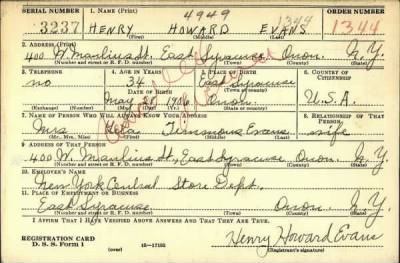 SERIAL NUMBER 1. NAME (Print) 4949 1344 ORDER NUMBER
3237 HENRY HOWARD EVANS 1344
(First) (Middle) (Last)
2. ADDRESS (Print)
400 W. Manlius St. East Syracuse Onon. N.Y.
(Number and street or R. F. D. number) (Town) (County) (State)
3. TELEPHONE 4. AGE IN YEARS 5. PLACE OF BIRTH 6. COUNTRY OF CITIZENSHIP
no 34 East Syracuse
DATE OF BIRTH (Town or county)
May 20 1906 Onon. U.S.A.
(Exchange) (Number) (Mo.) (Day) (Yr.) (State or country)
7. NAME OF PERSON WHO WILL ALWAYS KNOW YOUR ADDRESS 8. RELATIONSHIP OF THAT PERSON
Mrs Timmons Evans wife
(Mr., Mrs., Miss) (First) (Middle) (Last)
9. ADDRESS OF THAT PERSON
400 W. Manlius St., East Syracuse Onon. N.Y.
(Number and street or R. F. D. number) (Town) (County) (State)
10. EMPLOYER'S NAME
New York Central Store Dept.
11. PLACE OF EMPLOYMENT OR BUSINESS
East Syracuse Onon. N.Y.
(Number and street or R. F. D. number) (Town) (County) (State)
I AFFIRM THAT I HAVE VERIFIED ABOVE ANSWERS AND THAT THEY ARE TRUE.
REGISTRATION CARD Henry Howard Evans
D. S. S. Form 1 (over) 16—17105 (Registrant's signature)